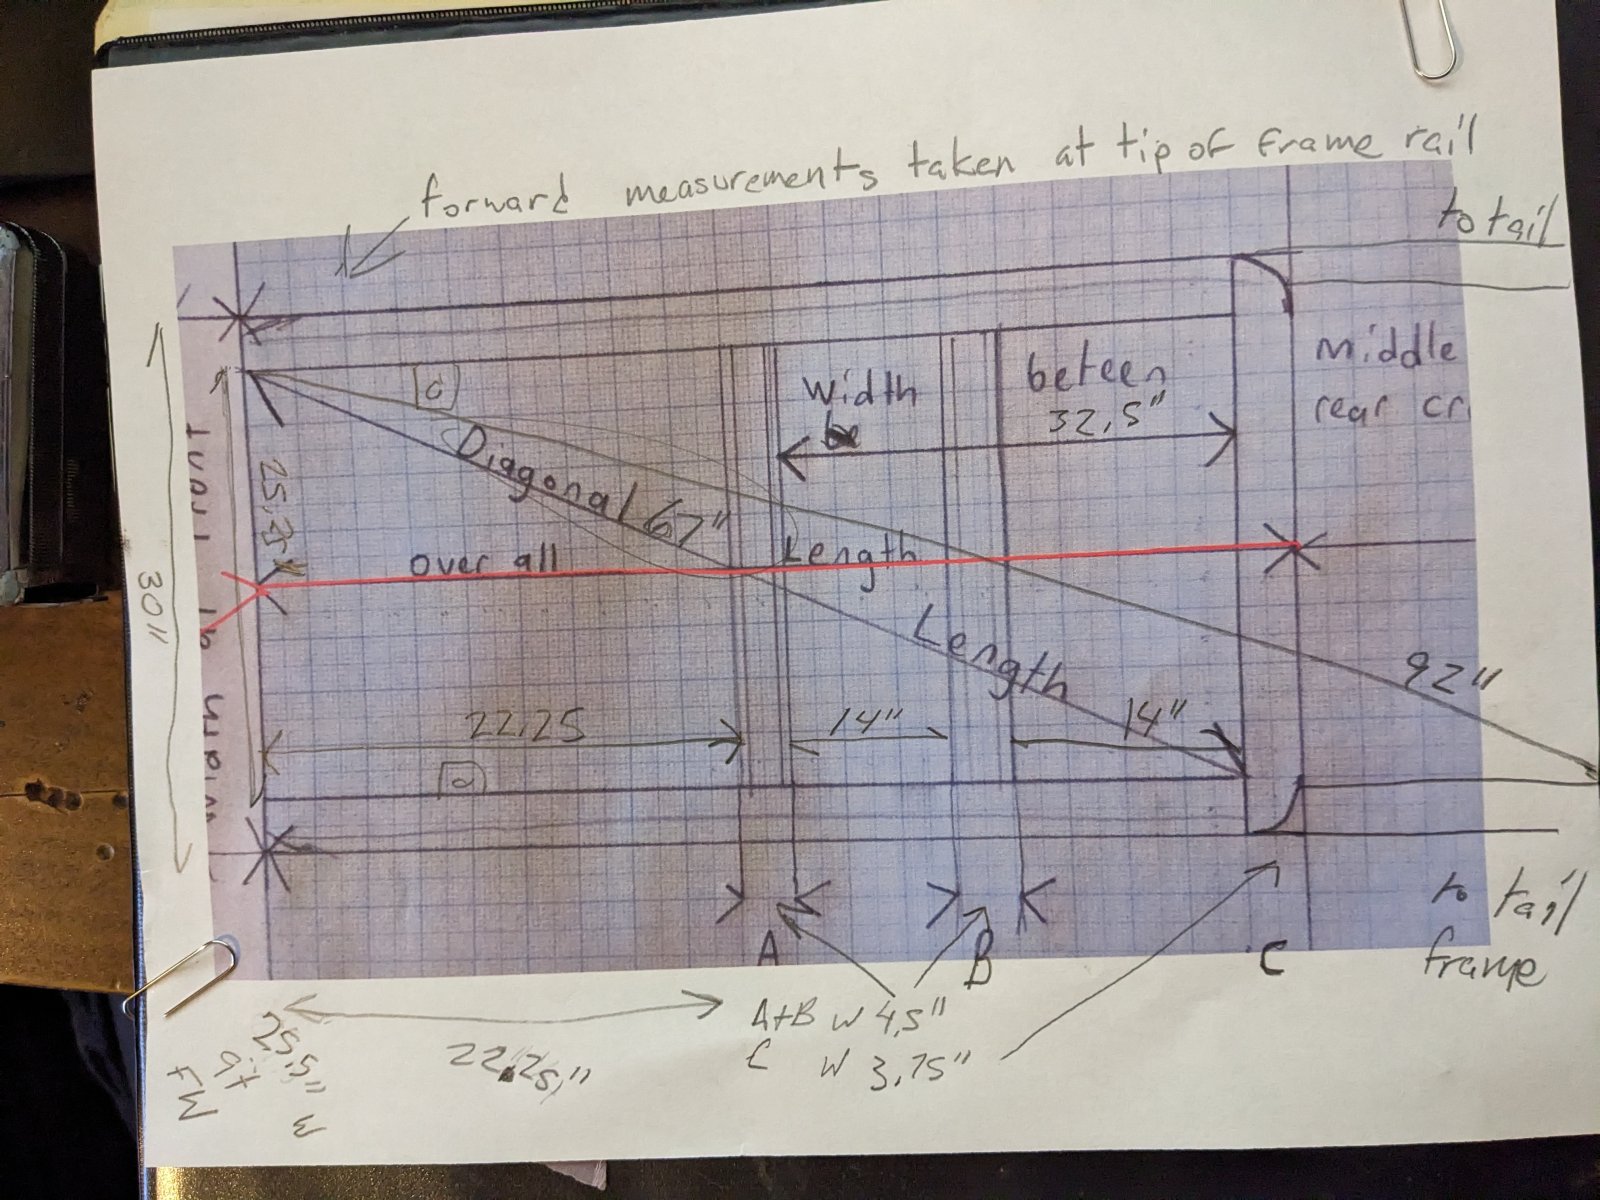 forward measurements taken at tip of frame rail
to tail
middle
rear cr
Width beteen
32,5"
Diagonal 67"
25.25
30"
over all Length
Length
92"
22.25
14"
14"
to tail
frame
A
B
C
A+B W 4,5"
C W 3,75"
22.25"
25,5"
FW